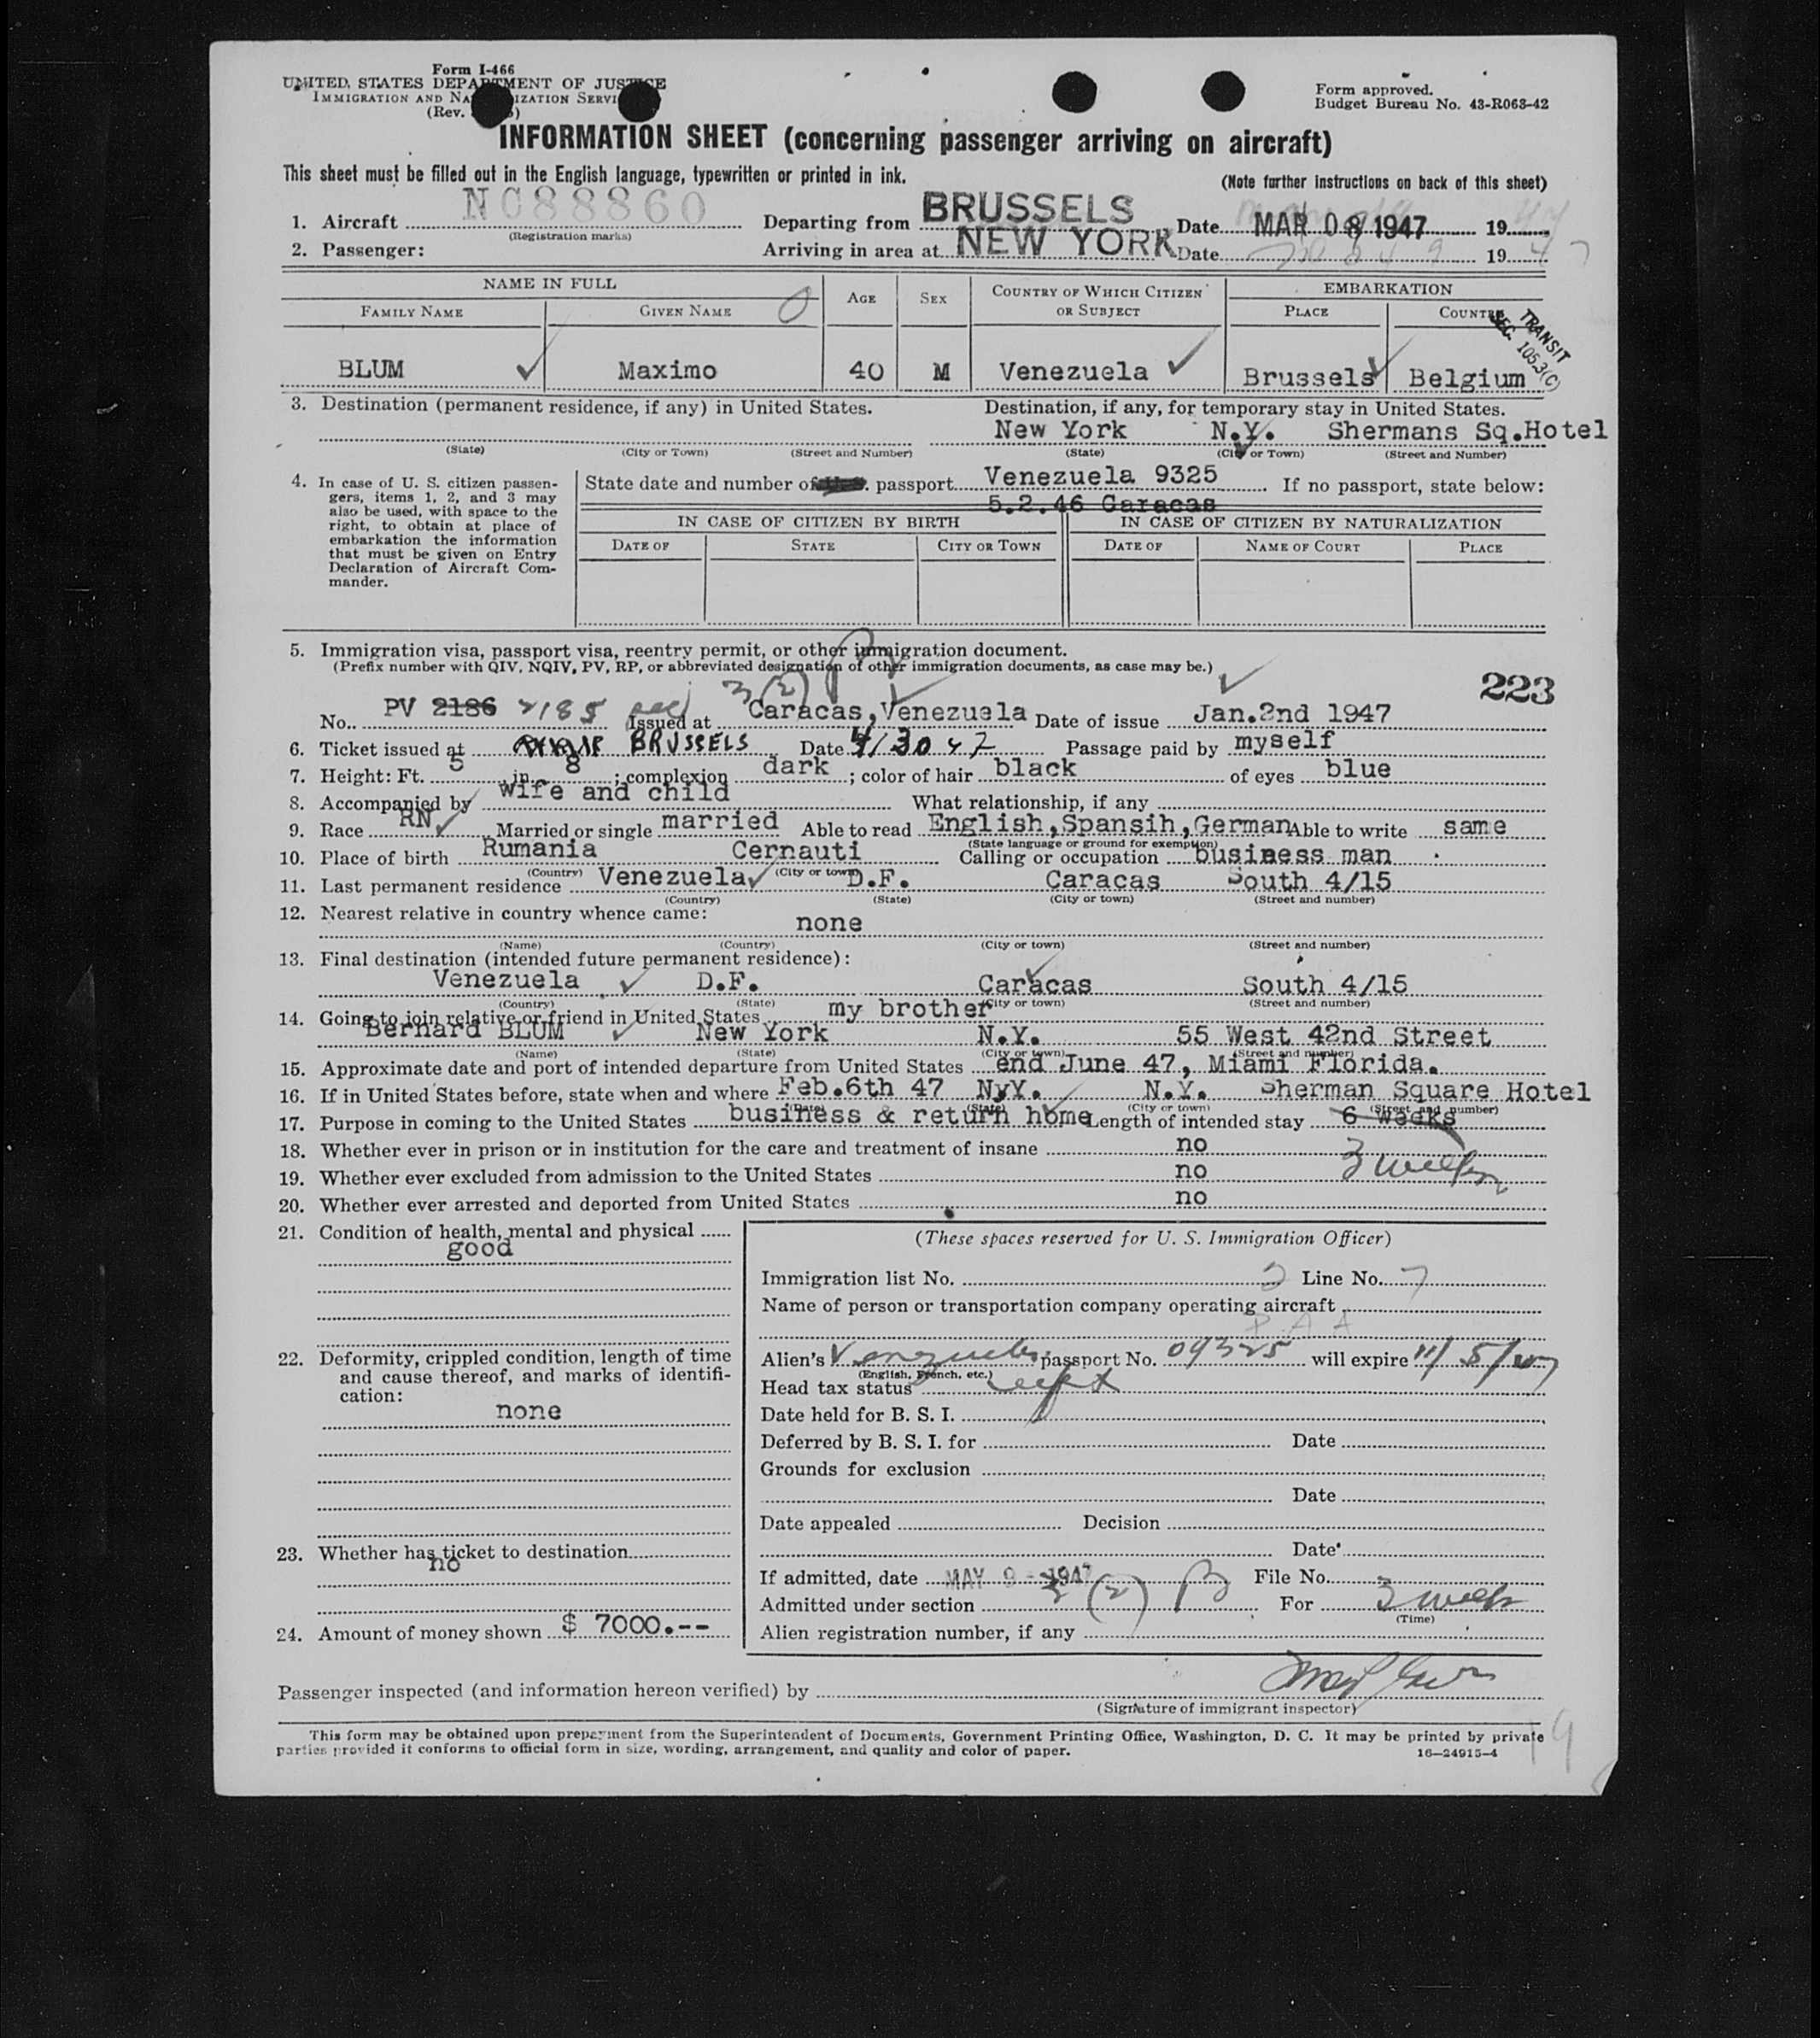 Form I-466
UNITED STATES DEPARTMENT OF JUSTICE
IMMIGRATION AND NA IZATION SERVI
(Rev.
Form approved.
Budget Bureau No. 43-R063-42
INFORMATION SHEET (concerning passenger arriving on aircraft)
This sheet must be filled out in the English language, typewritten or printed in ink.
(Note further instructions on back of this sheet)
1. Aircraft NC88860 Departing from BRUSSELS Date MAR 08 1947 19
(Registration marks)
2. Passenger: Arriving in area at NEW YORK Date 19 47
NAME IN FULL AGE SEX COUNTRY OF WHICH CITIZEN OR SUBJECT EMBARKATION
FAMILY NAME GIVEN NAME PLACE COUNTRY
TRANSIT
SEC. 105.3(C)
BLUM Maximo 40 M Venezuela Brussels Belgium
3. Destination (permanent residence, if any) in United States. Destination, if any, for temporary stay in United States.
New York N.Y. Shermans Sq.Hotel
(State) (City or Town) (Street and Number) (State) (City or Town) (Street and Number)
4. In case of U. S. citizen passengers, items 1, 2, and 3 may also be used, with space to the right, to obtain at place of embarkation the information that must be given on Entry Declaration of Aircraft Commander.
State date and number of passport Venezuela 9325 If no passport, state below:
5.2.46 Caracas
IN CASE OF CITIZEN BY BIRTH IN CASE OF CITIZEN BY NATURALIZATION
DATE OF STATE CITY OR TOWN DATE OF NAME OF COURT PLACE
5. Immigration visa, passport visa, reentry permit, or other immigration document.
(Prefix number with QIV, NQIV, PV, RP, or abbreviated designation of other immigration documents, as case may be.)
223
3(2)
No. PV 2186 2185 Issued at Caracas,Venezuela Date of issue Jan.2nd 1947
6. Ticket issued at BRUSSELS Date 4/30 47 Passage paid by myself
7. Height: Ft. 5 in. 8; complexion dark; color of hair black of eyes blue
8. Accompanied by wife and child What relationship, if any
9. Race RN Married or single married Able to read English,Spansih,German Able to write same
(State language or ground for exemption)
10. Place of birth Rumania Cernauti Calling or occupation business man
(Country) (City or town)
11. Last permanent residence Venezuela D.F. Caracas South 4/15
(Country) (State) (City or town) (Street and number)
12. Nearest relative in country whence came:
none
(Name) (Country) (City or town) (Street and number)
13. Final destination (intended future permanent residence):
Venezuela D.F. Caracas South 4/15
(Country) (State) (City or town) (Street and number)
14. Going to join relative or friend in United States my brother
Bernard BLUM New York N.Y. 55 West 42nd Street
(Name) (State) (City or town) (Street and number)
15. Approximate date and port of intended departure from United States end June 47, Miami Florida.
16. If in United States before, state when and where Feb.6th 47 NyY. N.Y. Sherman Square Hotel
(Date) (State) (City or town) (Street and number)
17. Purpose in coming to the United States business & return home Length of intended stay 6 weeks
3 weeks
18. Whether ever in prison or in institution for the care and treatment of insane no
19. Whether ever excluded from admission to the United States no
20. Whether ever arrested and deported from United States no
21. Condition of health, mental and physical
good
22. Deformity, crippled condition, length of time and cause thereof, and marks of identification:
none
23. Whether has ticket to destination
no
24. Amount of money shown $ 7000.--
(These spaces reserved for U. S. Immigration Officer)
Immigration list No. 2 Line No. 7
Name of person or transportation company operating aircraft
P A A
Alien's Venezuela passport No. 09325 will expire 11/5/47
(English, French, etc.)
Head tax status
Date held for B. S. I.
Deferred by B. S. I. for Date
Grounds for exclusion
Date
Date appealed Decision
Date
If admitted, date MAY 9 - 1947 File No.
Admitted under section 3(2) B For 3 weeks
(Time)
Alien registration number, if any
Passenger inspected (and information hereon verified) by
(Signature of immigrant inspector)
This form may be obtained upon prepayment from the Superintendent of Documents, Government Printing Office, Washington, D. C. It may be printed by private
parties provided it conforms to official form in size, wording, arrangement, and quality and color of paper.
16—24915-4
19